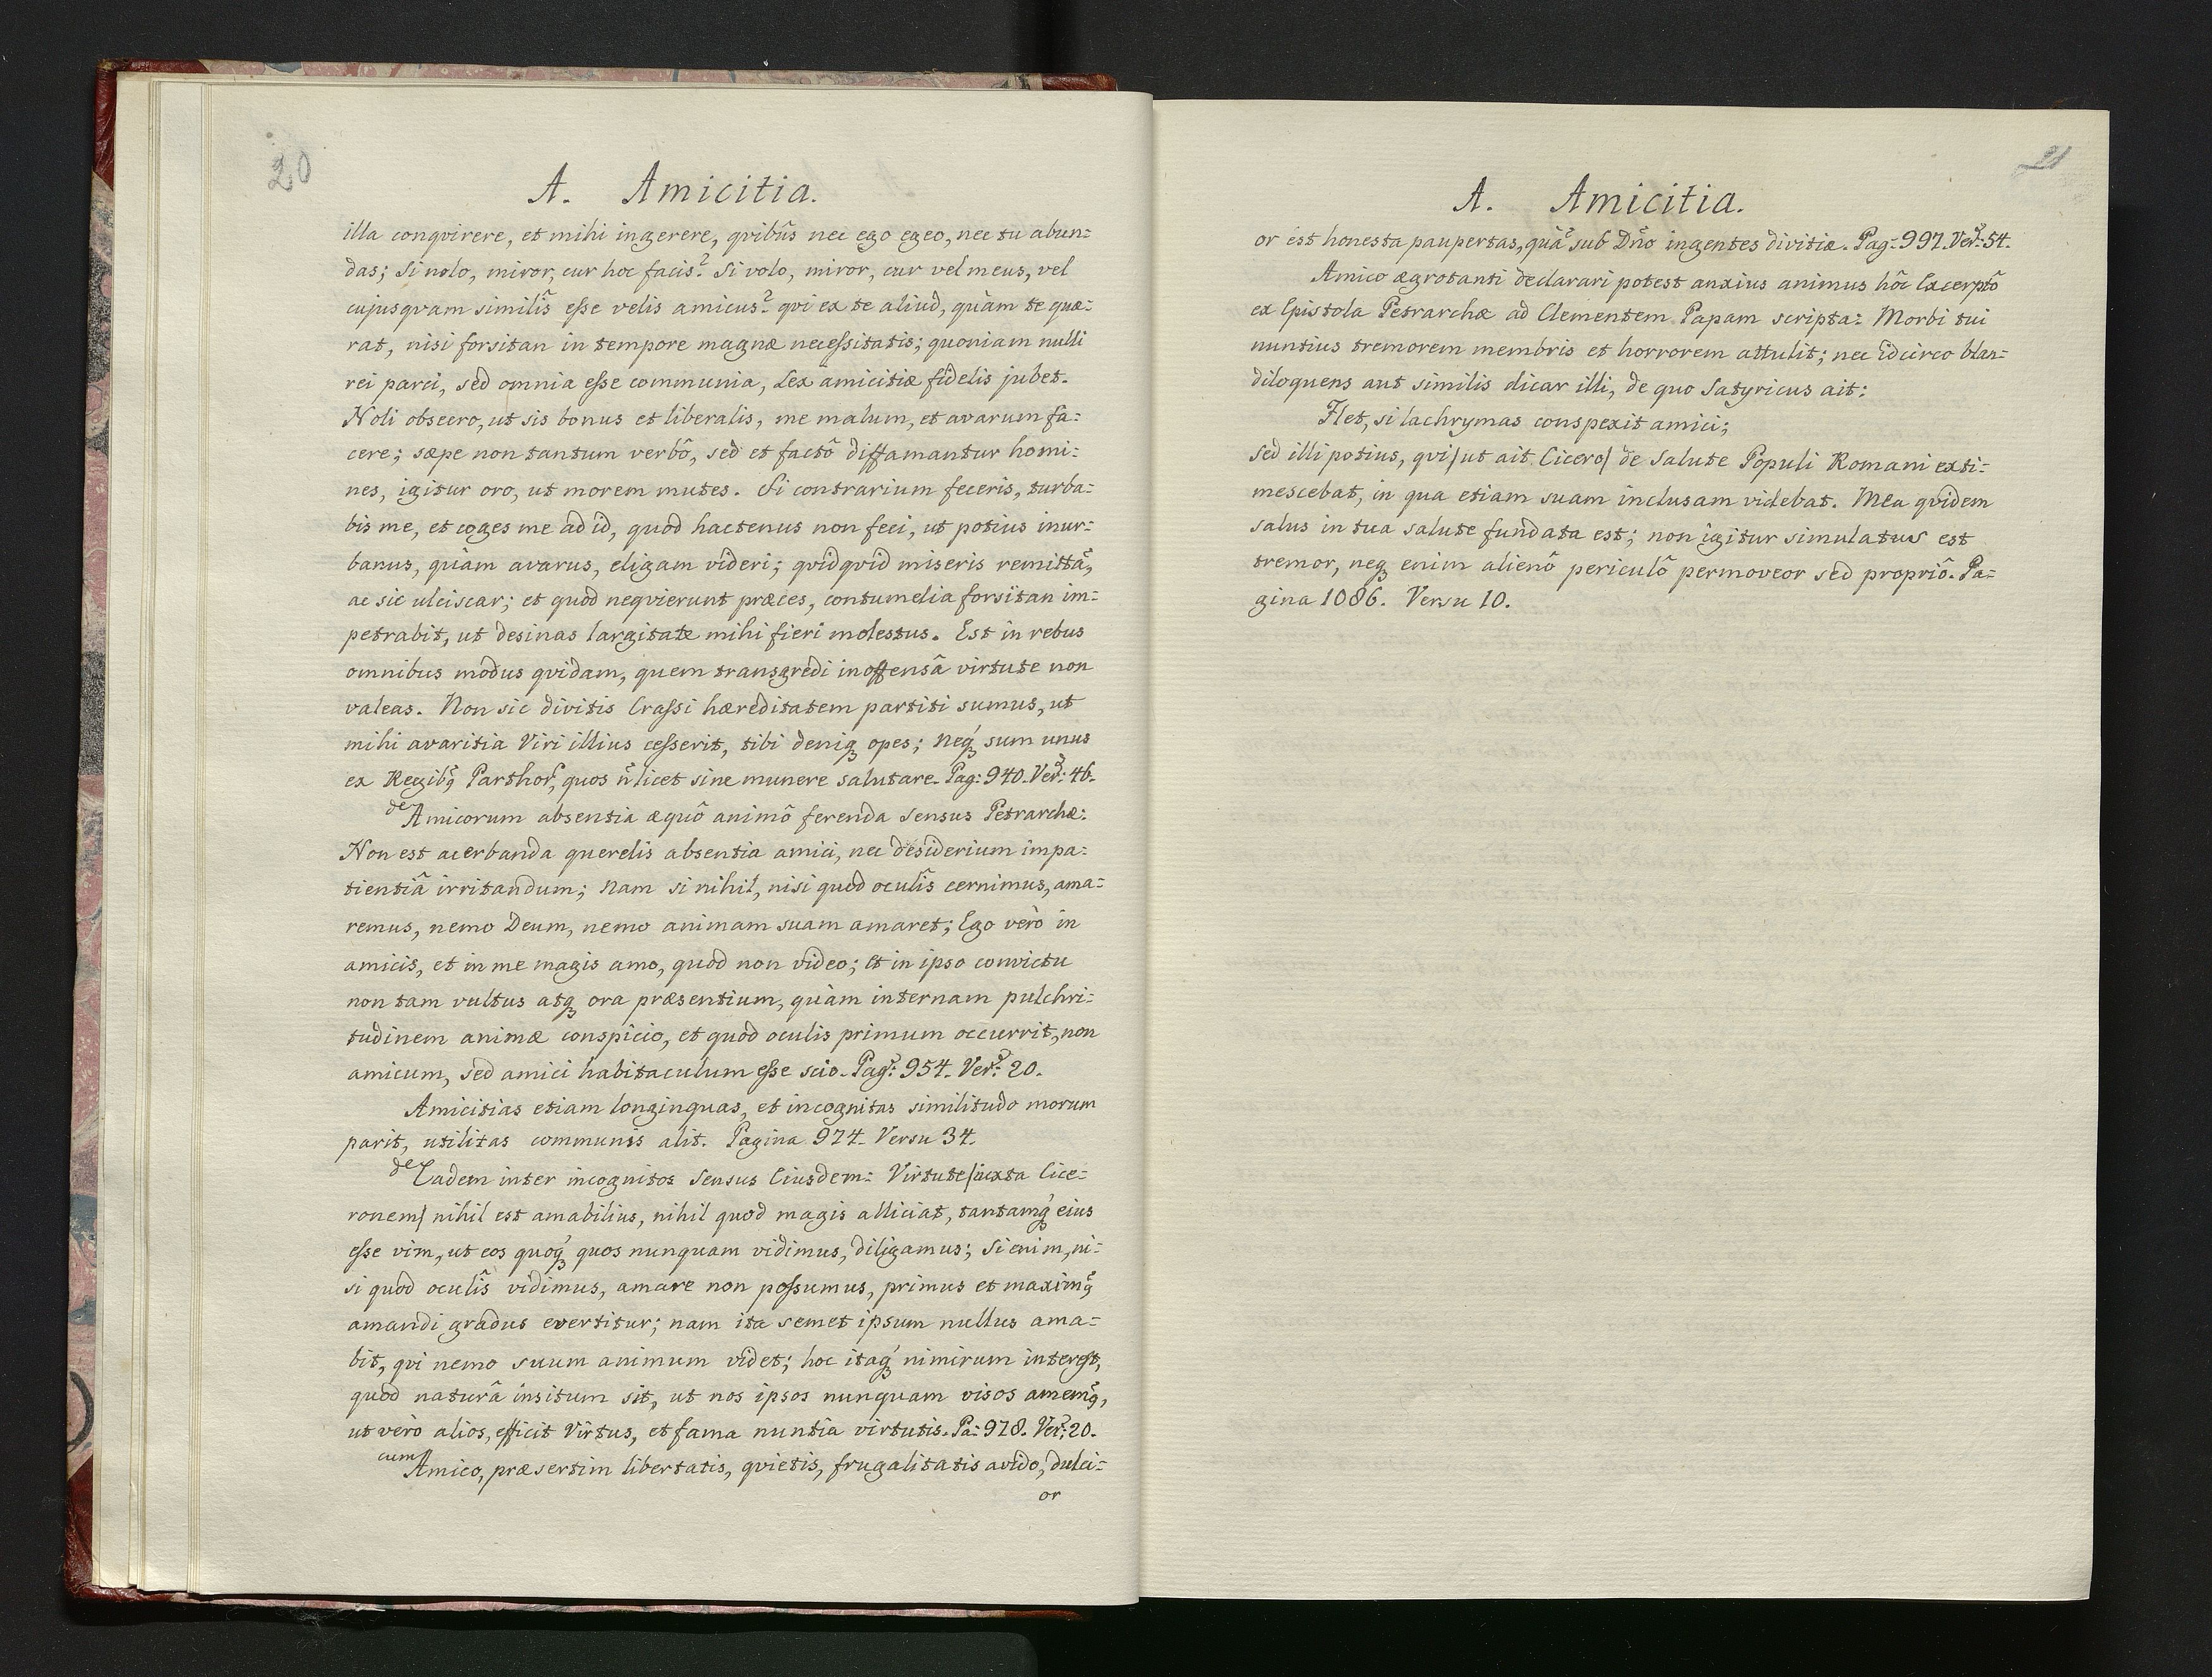 20
A. Amicitia.
illa conqvirere, et mihi ingerere, qvibûs nec ego egeo, nec tu abun=
das; Si nolo, miror, cur hoc facis? Si volo, miror, cur vel meus, vel
cujusqvam similîs esse velis amicus? qvi ex te aliud, quàm te quæ=
rat, nisi forsitan in tempore magnæ necessitatis; quoniam nulli
rei parci, sed omnia esse communia, Lex amicitiæ fidelis jubet.
Noli obsecro, ut sis bonus et liberalis, me malum, et avarum fa=
cere; sæpe non tantum verbô, sed et factô diffamantur homi=
nes, igitur oro, ut morem mutes. Si contrarium feceris, turba=
bis me, et coges me ad id, quod hactenus non feci, ut potius inur=
banus, quàm avarus, eligam videri; qvidqvid miseris remittã,
ac sic ulciscar; et quod neqvierunt præces, contumelia forsitan im=
petrabit, ut desinas largitate mihi fieri molestus. Est in rebus
omnibus modus qvidam, quem transgredi inoffensâ virtute non
valeas. Non sic divitis Crassi hæreditatem partiti sumus, ut
mihi avaritia Viri illius cesserit, tibi deniqꝫ opes; neqꝫ sum unus
ex Regibꝰ Parthor, quos ñ licet sine munere salutare. Pag: 940. Ver: 46.
de Amicorum absentia æquô animô ferenda Sensus Petrarchæ:
Non est acerbanda querelis absentia amici, nec desiderium impa=
tientiâ irritandum; Nam si nihil, nisi quod oculîs cernimus, ama=
remus, nemo Deum, nemo animam suam amaret; Ego verò in
amicis, et in me magis amo, quod non video; Et in ipso convictu
non tam vultus atqꝫ ora præsentium, quàm internam pulchri=
tudinem animæ conspicio, et quod oculis primum occurrit, non
amicum, sed amici habitaculum esse scio. Pag: 954. Ver: 20.
Amicitias etiam longinquas, et incognitas similitudo morum
parit, utilitas communis alit. Pagina 974. Versu 34.
de Eadem inter incognitos Sensus Eiusdem: Virtute/iuxta Cice=
ronem/ nihil est amabilius, nihil quod magis alliciat, tantamqꝫ eius
esse vim, ut eos quoqꝫ quos nunquam vidimus, diligamus; Si enim, ni=
si quod oculîs vidimus, amare non possumus, primus et maximꝰ
amandi gradus evertitur; nam ita semet ipsum nullus ama=
bit, qvi nemo suum animum videt; hoc itaqꝫ nimirum interest,
quod naturâ insitum sit, ut nos ipsos nunquam visos amemꝰ,
ut verò alios, efficit Virtus, et fama nuntia virtutis. Pa: 978. Ver: 20.
cum Amico, præsertim libertatis, qvietis, frugalitatis avido, dulci=
or
21
A. Amicitia.
or est honesta paupertas, quã sub Dño ingentes divitiæ. Pag: 997. Ver: 54.
Amico ægrotanti declarari potest anxius animus hôc Excerptô
ex Epistola Petrarchæ ad Clementem Papam scripta: Morbi tui
nuntius tremorem membris et horrorem attulit; nec idcirco blan=
diloquens aut similis dicar illi, de quo Satyricus ait:
Flet, si lachrymas conspexit amici;
sed illi potius, qvi/ut ait Cicero/ de Salute Populi Romani exti=
mescebat, in qua etiam suam inclusam videbat. Mea qvidem
salus in tua salute fundata est; non igitur simulatus est
tremor, neqꝫ enim alienô periculô permoveor sed propriô. Pa=
gina 1086. Versu 10.